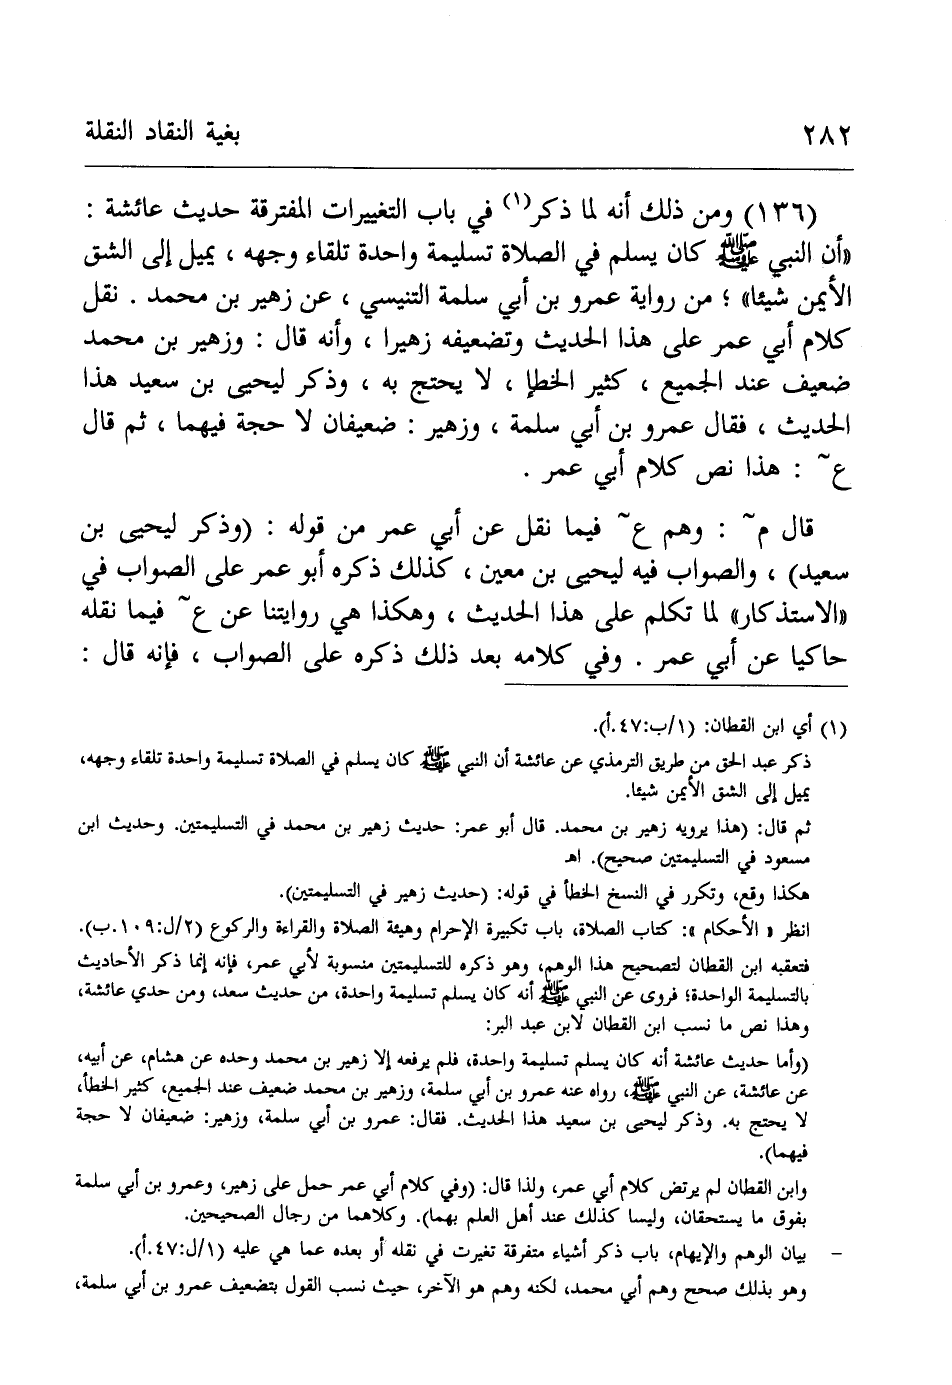 ٢٨٢ بغية النقاد النقلة
(١٣٦) ومن ذلك أنه لما ذكر(١) في باب التغييرات المفترقة حديث عائشة :
«أن النبي ﷺ كان يسلم في الصلاة تسليمة واحدة تلقاء وجهه ، يميل إلى الشق
الأيمن شيئا» ؛ من رواية عمرو بن أبي سلمة التنيسي ، عن زهير بن محمد . نقل
كلام أبي عمر على هذا الحديث وتضعيفه زهيرا ، وأنه قال : وزهير بن محمد
ضعيف عند الجميع ، كثير الخطإ ، لا يحتج به ، وذكر ليحيى بن سعيد هذا
الحديث ، فقال عمرو بن أبي سلمة ، وزهير : ضعيفان لا حجة فيهما ، ثم قال
ع~ : هذا نص كلام أبي عمر .
قال م~ : وهم ع~ فيما نقل عن أبي عمر من قوله : (وذكر ليحيى بن
سعيد) ، والصواب فيه ليحيى بن معين ، كذلك ذكره أبو عمر على الصواب في
«الاستذكار» لما تكلم على هذا الحديث ، وهكذا هي روايتنا عن ع~ فيما نقله
حاكيا عن أبي عمر . وفي كلامه بعد ذلك ذكره على الصواب ، فإنه قال :
(١) أي ابن القطان: (١/ب:٤٧.أ).
ذكر عبد الحق من طريق الترمذي عن عائشة أن النبي ﷺ كان يسلم في الصلاة تسليمة واحدة تلقاء وجهه،
يميل إلى الشق الأيمن شيئا.
ثم قال: (هذا يرويه زهير بن محمد. قال أبو عمر: حديث زهير بن محمد في التسليمتين. وحديث ابن
مسعود في التسليمتين صحيح). اهـ
هكذا وقع، وتكرر في النسخ الخطأ في قوله: (حديث زهير في التسليمتين).
انظر « الأحكام »: كتاب الصلاة، باب تكبيرة الإحرام وهيئة الصلاة والقراءة والركوع (٢/ل:١٠٩.ب).
فتعقبه ابن القطان لتصحيح هذا الوهم، وهو ذكره للتسليمتين منسوبة لأبي عمر، فإنه إنما ذكر الأحاديث
بالتسليمة الواحدة؛ فروى عن النبي ﷺ أنه كان يسلم تسليمة واحدة، من حديث سعد، ومن حدي عائشة،
وهذا نص ما نسب ابن القطان لابن عبد البر:
(وأما حديث عائشة أنه كان يسلم تسليمة واحدة، فلم يرفعه إلا زهير بن محمد وحده عن هشام، عن أبيه،
عن عائشة، عن النبي ﷺ، رواه عنه عمرو بن أبي سلمة، وزهير بن محمد ضعيف عند الجميع، كثير الخطأ،
لا يحتج به. وذكر ليحيى بن سعيد هذا الحديث. فقال: عمرو بن أبي سلمة، وزهير: ضعيفان لا حجة
فيهما).
وابن القطان لم يرتض كلام أبي عمر، ولذا قال: (وفي كلام أبي عمر حمل على زهير، وعمرو بن أبي سلمة
بفوق ما يستحقان، وليسا كذلك عند أهل العلم بهما). وكلاهما من رجال الصحيحين.
– بيان الوهم والإيهام، باب ذكر أشياء متفرقة تغيرت في نقله أو بعده عما هي عليه (١/ل:٤٧.أ).
وهو بذلك صحح وهم أبي محمد، لكنه وهم هو الآخر، حيث نسب القول بتضعيف عمرو بن أبي سلمة،